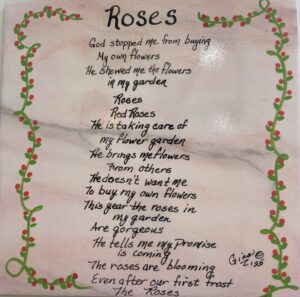 Roses
God stopped me from buying
My own flowers
He showed me the flowers
in my garden
Roses
Red Roses
He is taking care of
my flower garden
He brings me flowers
From others
He doesn't want me
To buy my own flowers
This year the roses in
my garden
Are gorgeous
He tells me my Promise
is coming
The roses are blooming
Even after our first frost
The Roses